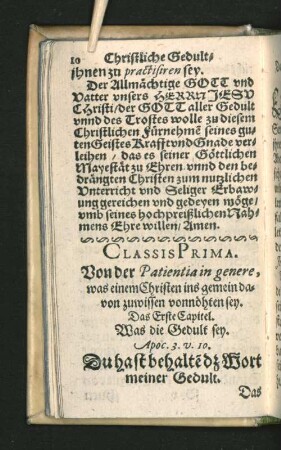 10 Christliche Gedult-
ihnen zu practisiren sey.
Der Allmächtige GOTT vnd
Vatter vnsers HERRN JESV
Christi/ der GOTT aller Gedult
vnnd des Trostes wolle zu diesem
Christlichen Fürnehmē seines gu-
ten Geistes Krafft vnd Gnade ver-
leihen, das es seiner Göttlichen
Mayestät zu Ehren vnnd den be-
drängten Christen zum nutzlichen
Vnterricht vnd Seliger Erbaw-
ung gereichen vnd gedeyen möge,
vmb seines hochpreißlichen Nah-
mens Ehre willen/ Amen.
CLASSIS PRIMA.
Von der Patientia in genere,
was einem Christen ins gemein da-
von zuwissen vonnöhten sey.
Das Erste Capitel.
Was die Gedult sey.
Apoc. 3. v. 10.
Du hast behaltē dz Wort
meiner Gedult.
Das